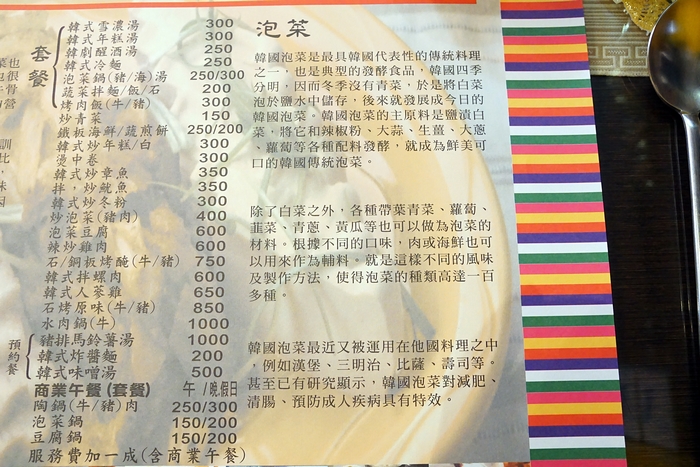 套餐
韓式雪濃湯 300
韓式年糕湯 300
韓劇醒酒湯 250
韓式冷麵 250
泡菜鍋(豬/海)湯 250/300
蔬菜拌麵/飯/石 200
烤肉飯(牛/豬) 300
炒青菜 150
鐵板海鮮/蔬煎餅 250/200
韓式炒年糕/白 300
燙中卷 300
韓式炒章魚 350
拌,炒魷魚 350
韓式炒冬粉 300
炒泡菜(豬肉) 400
泡菜豆腐 600
辣炒雞肉 600
石/銅板烤醃(牛/豬) 750
韓式拌螺肉 600
韓式人蔘雞 650
石烤原味(牛/豬) 850
水肉鍋(牛) 1000
預約餐
豬排馬鈴薯湯 1000
韓式炸醬麵 200
韓式味噌湯 500
商業午餐(套餐) 午/晚.假日
陶鍋(牛/豬)肉 250/300
泡菜鍋 150/200
豆腐鍋 150/200
服務費加一成(含商業午餐)
泡菜
韓國泡菜是最具韓國代表性的傳統料理
之一,也是典型的發酵食品,韓國四季
分明,因而冬季沒有青菜,於是將白菜
泡於鹽水中儲存,後來就發展成今日的
韓國泡菜。韓國泡菜的主原料是鹽漬白
菜,將它和辣椒粉、大蒜、生薑、大蔥
、蘿蔔等各種配料發酵,就成為鮮美可
口的韓國傳統泡菜。
除了白菜之外,各種帶葉青菜、蘿蔔、
韮菜、青蔥、黃瓜等也可以做為泡菜的
材料。根據不同的口味,肉或海鮮也可
以用來作為輔料。就是這樣不同的風味
及製作方法,使得泡菜的種類高達一百
多種。
韓國泡菜最近又被運用在他國料理之中
,例如漢堡、三明治、比薩、壽司等。
甚至已有研究顯示,韓國泡菜對減肥、
清腸、預防成人疾病具有特效。